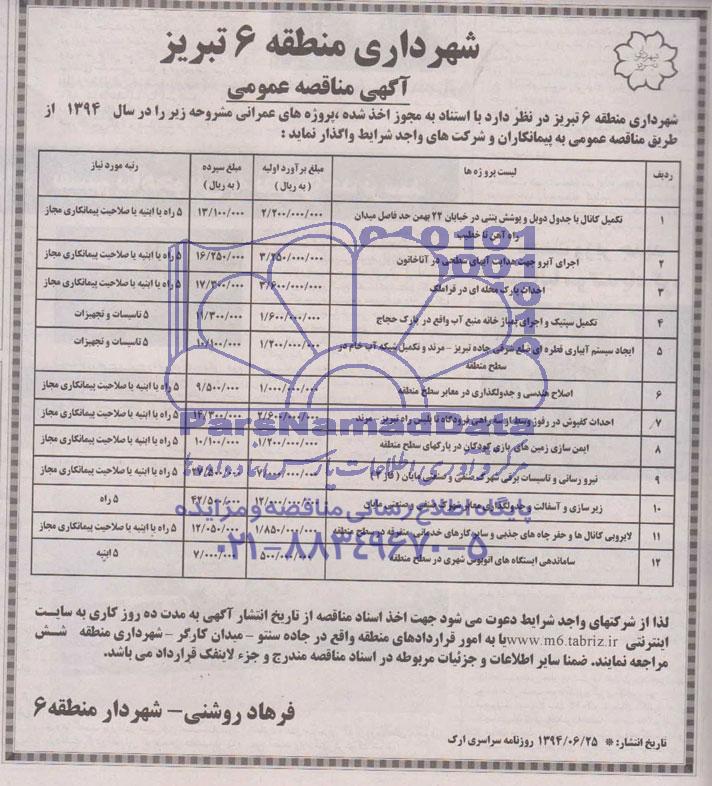 شهرداری منطقه ۶ تبریز
آگهی مناقصه عمومی
شهرداری منطقه ۶ تبریز در نظر دارد با استناد به مجوز اخذ شده ،پروژه های عمرانی مشروحه زیر را در سال ۱۳۹۴ از
طریق مناقصه عمومی به پیمانکاران و شرکت های واجد شرایط واگذار نماید :
ردیف لیست پروژه ها مبلغ برآورد اولیه ( به ریال ) مبلغ سپرده ( به ریال ) رتبه مورد نیاز
۱ تکمیل کانال با جدول دوبل و پوشش بتنی در خیابان ۲۲ بهمن حد فاصل میدان راه آهن تا خطیب ۲/۲۰۰/۰۰۰/۰۰۰ ۱۳/۱۰۰/۰۰۰ ۵ راه یا ابنیه یا صلاحیت پیمانکاری مجاز
۲ اجرای آبرو جهت هدایت آبهای سطحی در آناخاتون ۳/۲۵۰/۰۰۰/۰۰۰ ۱۶/۲۵۰/۰۰۰ ۵ راه یا ابنیه یا صلاحیت پیمانکاری مجاز
۳ احداث پارک محله ای در قراملک ۳/۶۰۰/۰۰۰/۰۰۰ ۱۷/۳۰۰/۰۰۰ ۵ راه یا ابنیه یا صلاحیت پیمانکاری مجاز
۴ تکمیل سپتیک و اجرای پمپاژ خانه منبع آب واقع در پارک حجاج ۱/۶۰۰/۰۰۰/۰۰۰ ۱۱/۳۰۰/۰۰۰ ۵ تاسیسات و تجهیزات
۵ ایجاد سیستم آبیاری قطره ای ضلع شرقی جاده تبریز - مرند و تکمیل شبکه آب خام در سطح منطقه ۱/۲۰۰/۰۰۰/۰۰۰ ۱۰/۱۰۰/۰۰۰ ۵ تاسیسات و تجهیزات
۶ اصلاح هندسی و جدولگذاری در معابر سطح منطقه ۱/۰۰۰/۰۰۰/۰۰۰ ۹/۵۰۰/۰۰۰ ۵ راه یا ابنیه یا صلاحیت پیمانکاری مجاز
۷ احداث کفپوش در رفوژ وسط از سه راهی فرودگاه تا پلیس راه تبریز - مرند ۲/۶۰۰/۰۰۰/۰۰۰ ۱۴/۳۰۰/۰۰۰ ۵ راه یا ابنیه یا صلاحیت پیمانکاری مجاز
۸ ایمن سازی زمین های بازی کودکان در پارکهای سطح منطقه ۱/۲۰۰/۰۰۰/۰۰۰ ۱۰/۱۰۰/۰۰۰ ۵ راه یا ابنیه یا صلاحیت پیمانکاری مجاز
۹ نیرو رسانی و تاسیسات برقی شهرک صنفی و صنعتی مایان ۵ راه یا ابنیه یا صلاحیت پیمانکاری مجاز
۱۰ زیر سازی و آسفالت و جدولگذاری معابر شهرک صنفی و صنعتی مایان ۱۲/۰۰۰/۰۰۰/۰۰۰ ۴۲/۵۰۰/۰۰۰ ۵ راه
۱۱ لایروبی کانال ها و حفر چاه های جذبی و سایر کارهای خدماتی متفرقه در سطح منطقه ۱/۸۵۰/۰۰۰/۰۰۰ ۱۲/۰۵۰/۰۰۰ ۵ راه یا ابنیه یا صلاحیت پیمانکاری مجاز
۱۲ ساماندهی ایستگاه های اتوبوس شهری در سطح منطقه ۵۰۰/۰۰۰/۰۰۰ ۷/۰۰۰/۰۰۰ ۵ ابنیه
ParsNamadData
مرکز فرآوری اطلاعات پارس نماد داده ها
پایگاه اطلاع رسانی مناقصه و مزایده
۰۲۱-۸۸۳۴۹۶۷۰-۵
لذا از شرکتهای واجد شرایط دعوت می شود جهت اخذ اسناد مناقصه از تاریخ انتشار آگهی به مدت ده روز کاری به سایت
اینترنتی www.m6.tabriz.ir یا به امور قراردادهای منطقه واقع در جاده سنتو - میدان کارگر - شهرداری منطقه شش
مراجعه نمایند. ضمنا سایر اطلاعات و جزئیات مربوطه در اسناد مناقصه مندرج و جزء لاینفک قرارداد می باشد.
فرهاد روشنی- شهردار منطقه۶
تاریخ انتشار: * ۱۳۹۴/۰۶/۲۵ روزنامه سراسری ارک